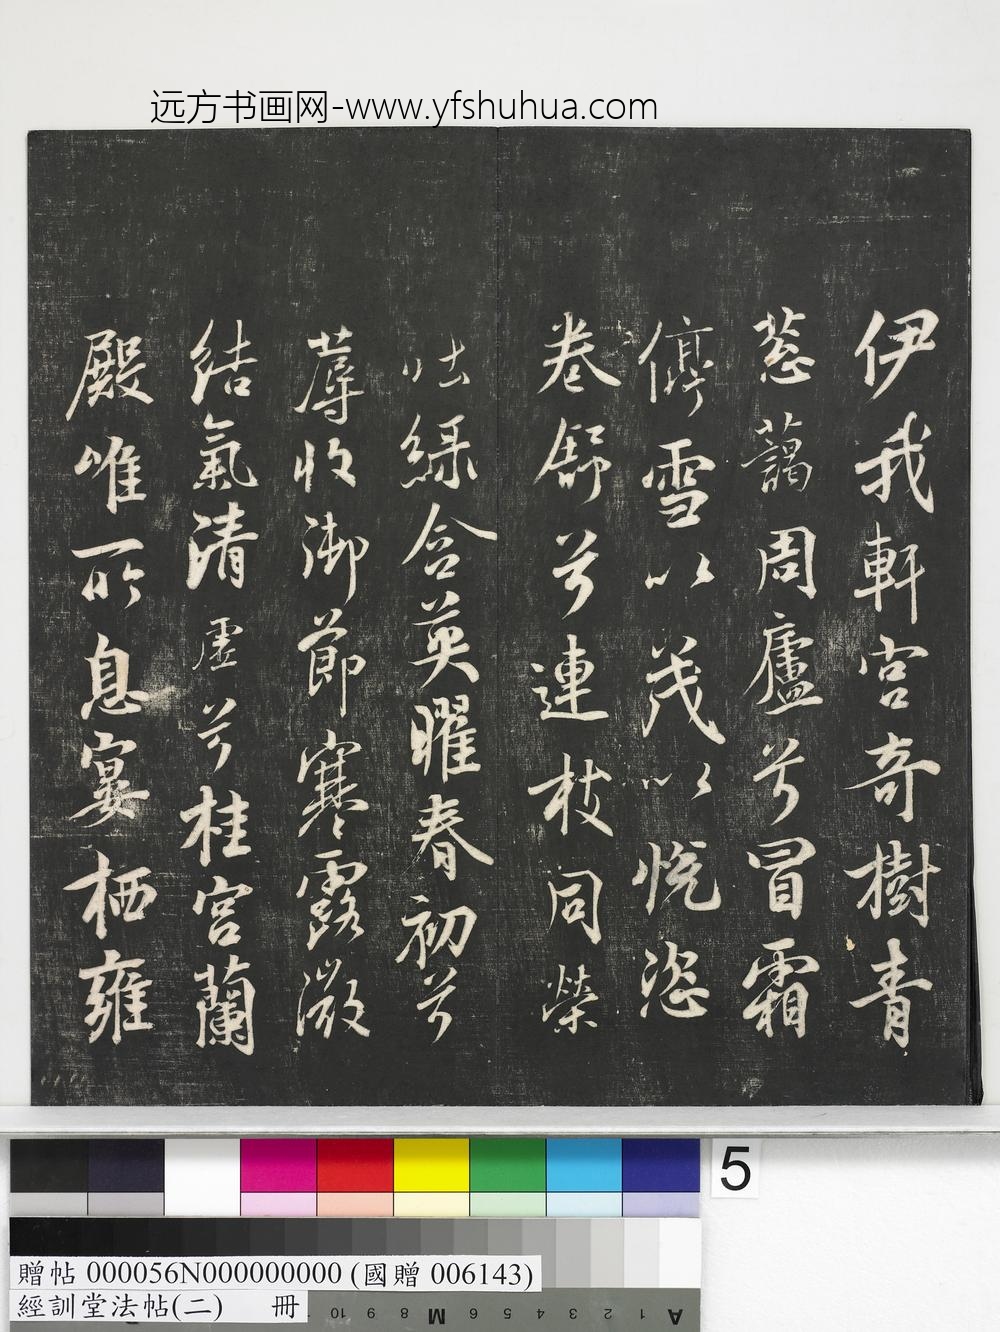 远方书画网-www.yfshuhua.com
伊我軒宮奇樹青
蔥藹周廬兮冒霜
停雪以茂以悅恣
卷舒兮連枝同榮
吐綠含英曜春初兮
蓐收御節寒露微
結氣清虛兮桂宮蘭
殿唯所息宴栖雍
5
贈帖 000056N000000000 (國贈 006143)
經訓堂法帖(二) 冊
A 1 2 3 4 5 6 M 8 9 10